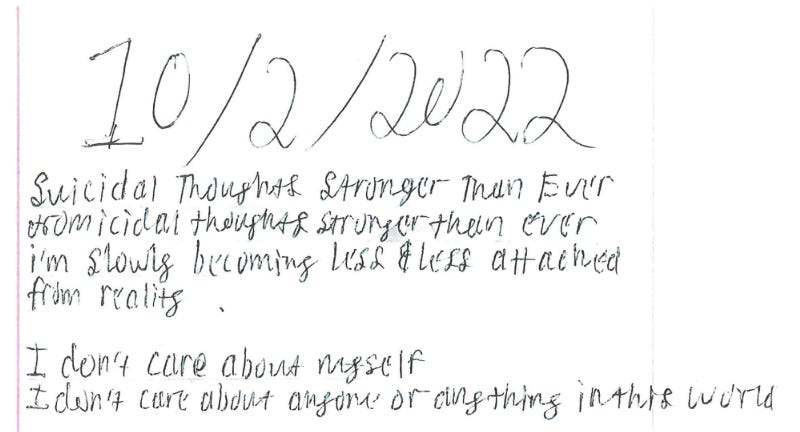 10/2/2022
Suicidal Thoughts Stronger Than Ever
Homicidal thoughts stronger than ever
i'm slowly becoming less & less attached
from reality .
I don't care about myself
I don't care about anyone or anything in this world